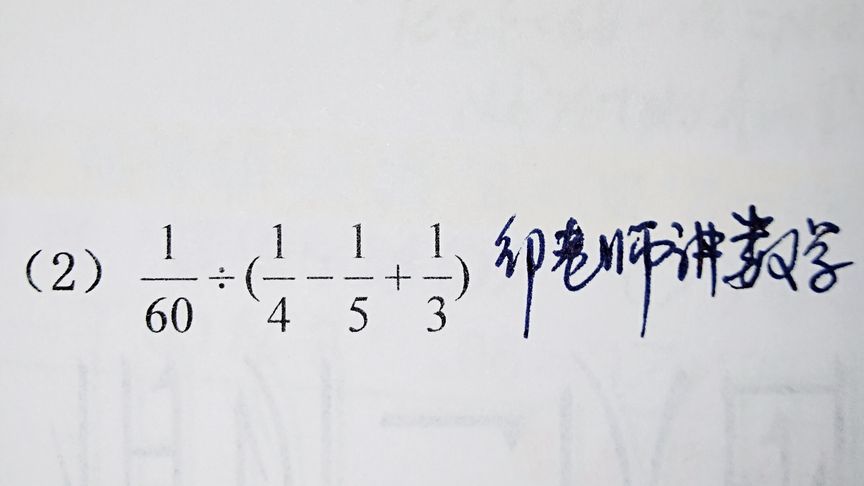 (2) 1/60 ÷ (1/4 − 1/5 + 1/3) 印老师讲数学